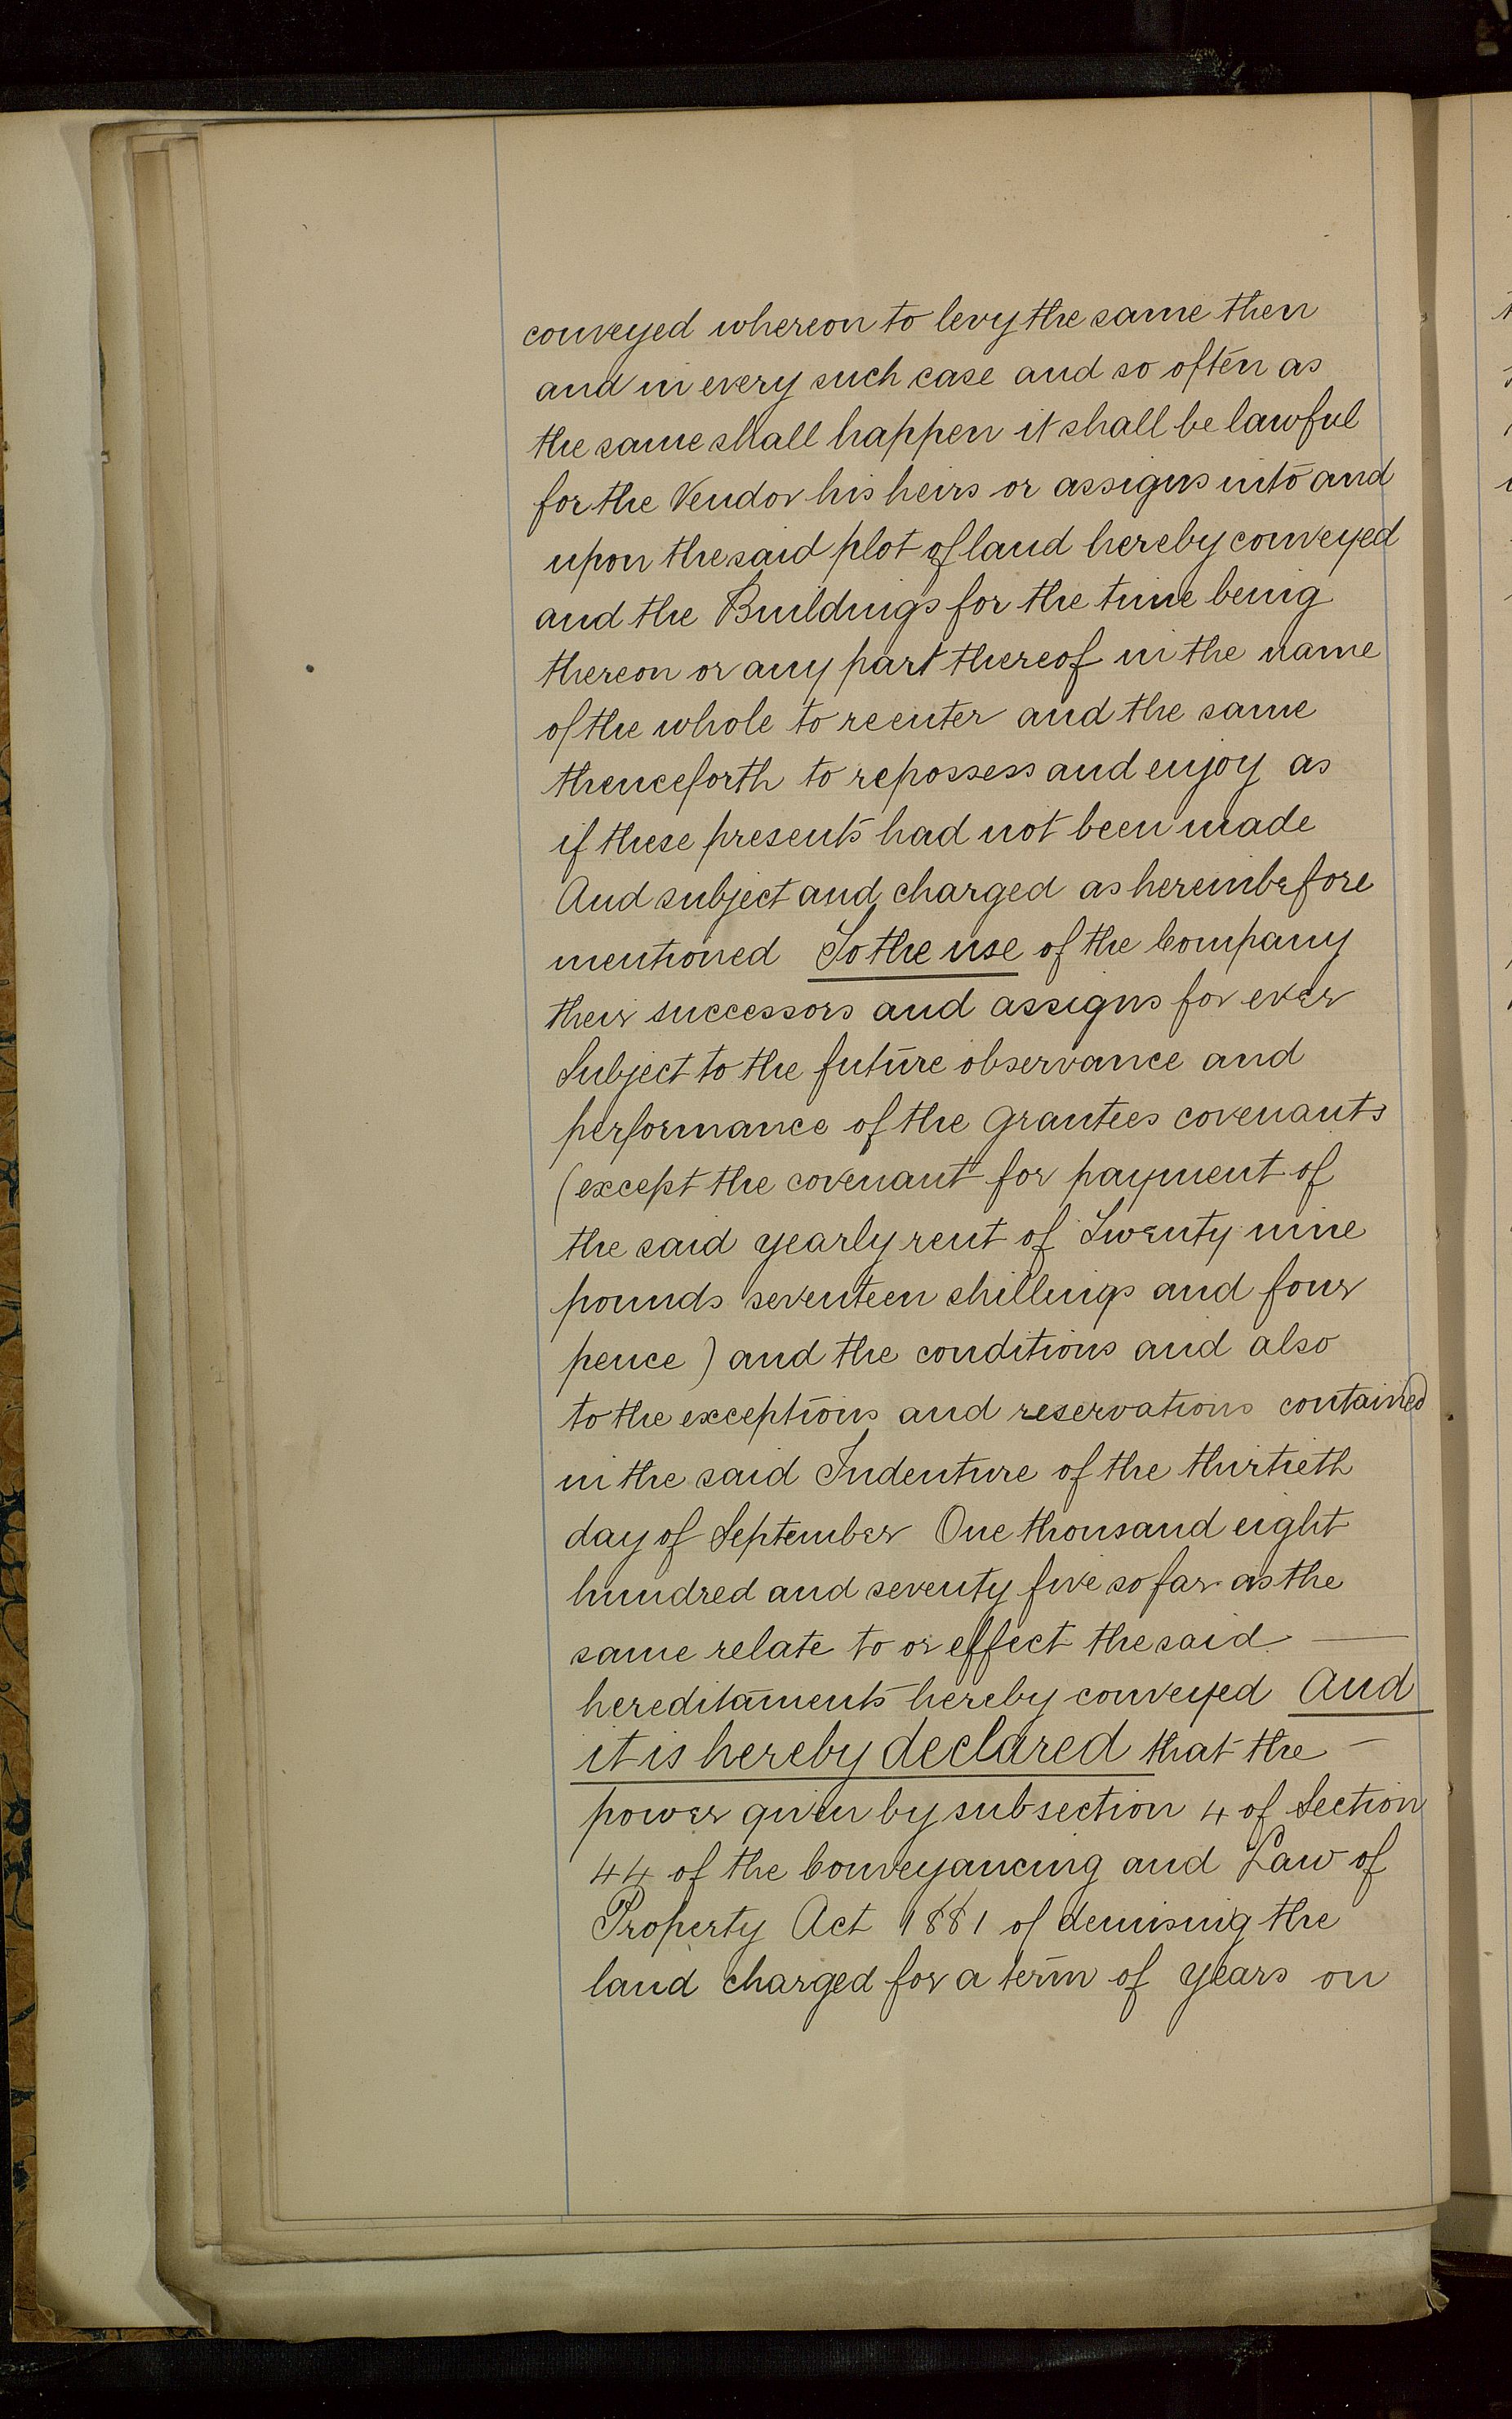 conveyed whereon to levy the same then
and in every such case and so often as
the same shall happen it shall be lawful
for the Vendor his heirs or assigns into and
upon the said plot of land hereby conveyed
and the Buildings for the time being
thereon or any part thereof in the name
of the whole to reenter and the same
thenceforth to repossess and enjoy as
if these presents had not been made
And subject and charged as hereinbefore
mentioned To the use of the Company
their successors and assigns for ever
Subject to the future observance and
performance of the Grantees covenants
(except the covenant for payment of
the said yearly rent of Twenty nine
pounds seventeen shillings and four
pence) and the conditions and also
to the exceptions and reservations contained
in the said Indenture of the thirtieth
day of September One thousand eight
hundred and seventy five so far as the
same relate to or effect the said —
hereditaments hereby conveyed And
it is hereby declared that the —
power given by subsection 4 of Section
44 of the Conveyancing and Law of
Property Act 1881 of demising the
land charged for a term of years on